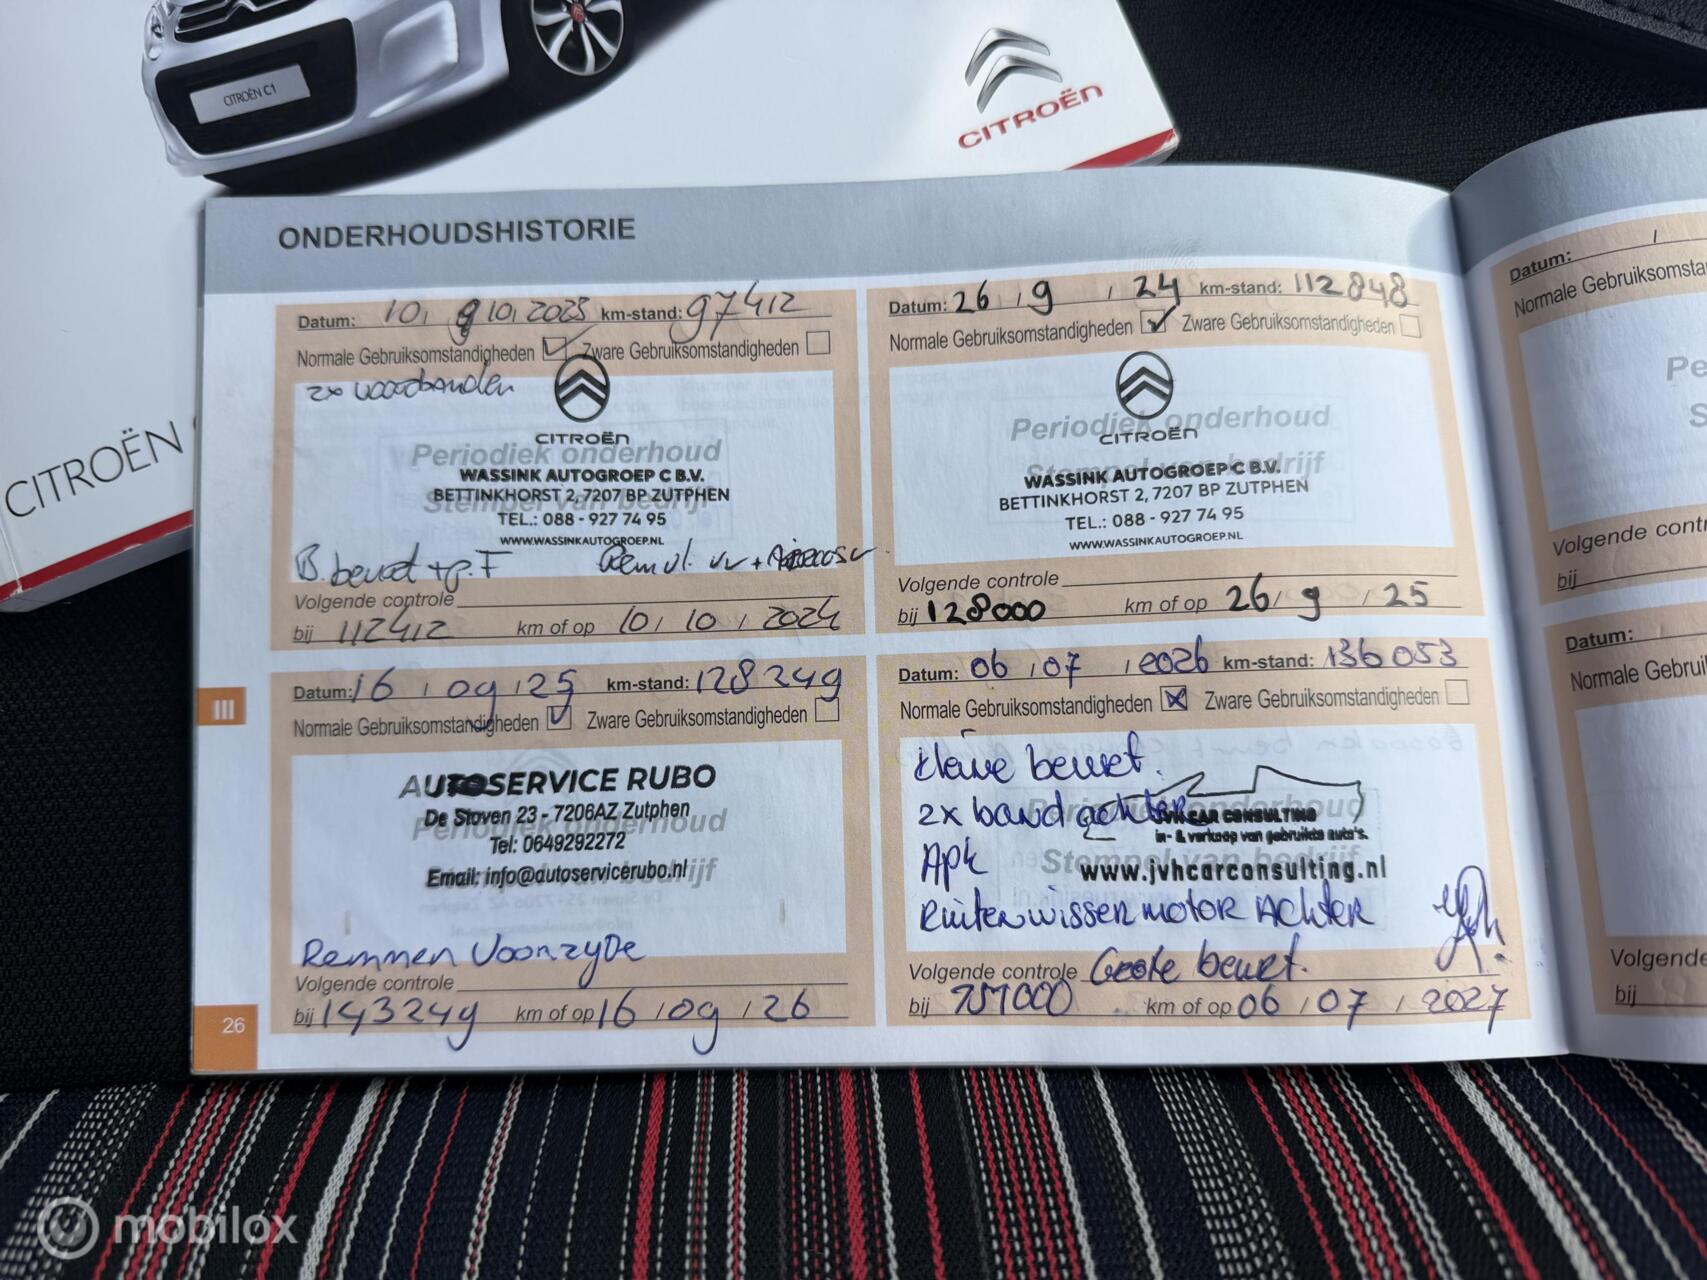 CITROËN C1
CITROËN
CITROËN
ONDERHOUDSHISTORIE
Datum: 10, 10, 2023 km-stand: 97412
Normale Gebruiksomstandigheden Zware Gebruiksomstandigheden
2x voorbanden
CITROËN
Periodiek onderhoud
WASSINK AUTOGROEP C B.V.
BETTINKHORST 2, 7207 BP ZUTPHEN
Stempel van bedrijf
TEL.: 088 - 927 74 95
WWW.WASSINKAUTOGROEP.NL
B. beurt + p.F Remvl. vv +
Volgende controle
bij 112412 km of op 10, 10, 2024
Datum: 26 / 9 / 24 km-stand: 112848
Normale Gebruiksomstandigheden Zware Gebruiksomstandigheden
Periodiek onderhoud
CITROËN
Stempel van bedrijf
WASSINK AUTOGROEP C B.V.
BETTINKHORST 2, 7207 BP ZUTPHEN
TEL.: 088 - 927 74 95
WWW.WASSINKAUTOGROEP.NL
Volgende controle
bij 128000 km of op 26 / 9 / 25
III
Datum: 16 / 09 / 25 km-stand: 128249
Normale Gebruiksomstandigheden Zware Gebruiksomstandigheden
AUTOSERVICE RUBO
De Stoven 23 - 7206AZ Zutphen
Periodiek onderhoud
Tel: 0649292272
Email: info@autoservicerubo.nl
Stempel van bedrijf
Remmen Voorzyde
Volgende controle
bij 143249 km of op 16 / 09 / 26
26
Datum: 06 / 07 / 2026 km-stand: 136053
Normale Gebruiksomstandigheden Zware Gebruiksomstandigheden
kleine beurt.
2x band achter
Periodiek onderhoud
JVH CAR CONSULTING
in- & verkoop van gebruikte auto's.
Apk
Stempel van bedrijf
www.jvhcarconsulting.nl
Ruitenwissermotor Achter
Volgende controle Grote beurt.
bij 151000 km of op 06 / 07 / 2027
Datum: /
Normale Gebruiksomsta
Pe
S
Volgende contr
bij
Datum:
Normale Gebrui
Volgende
bij
mobilox